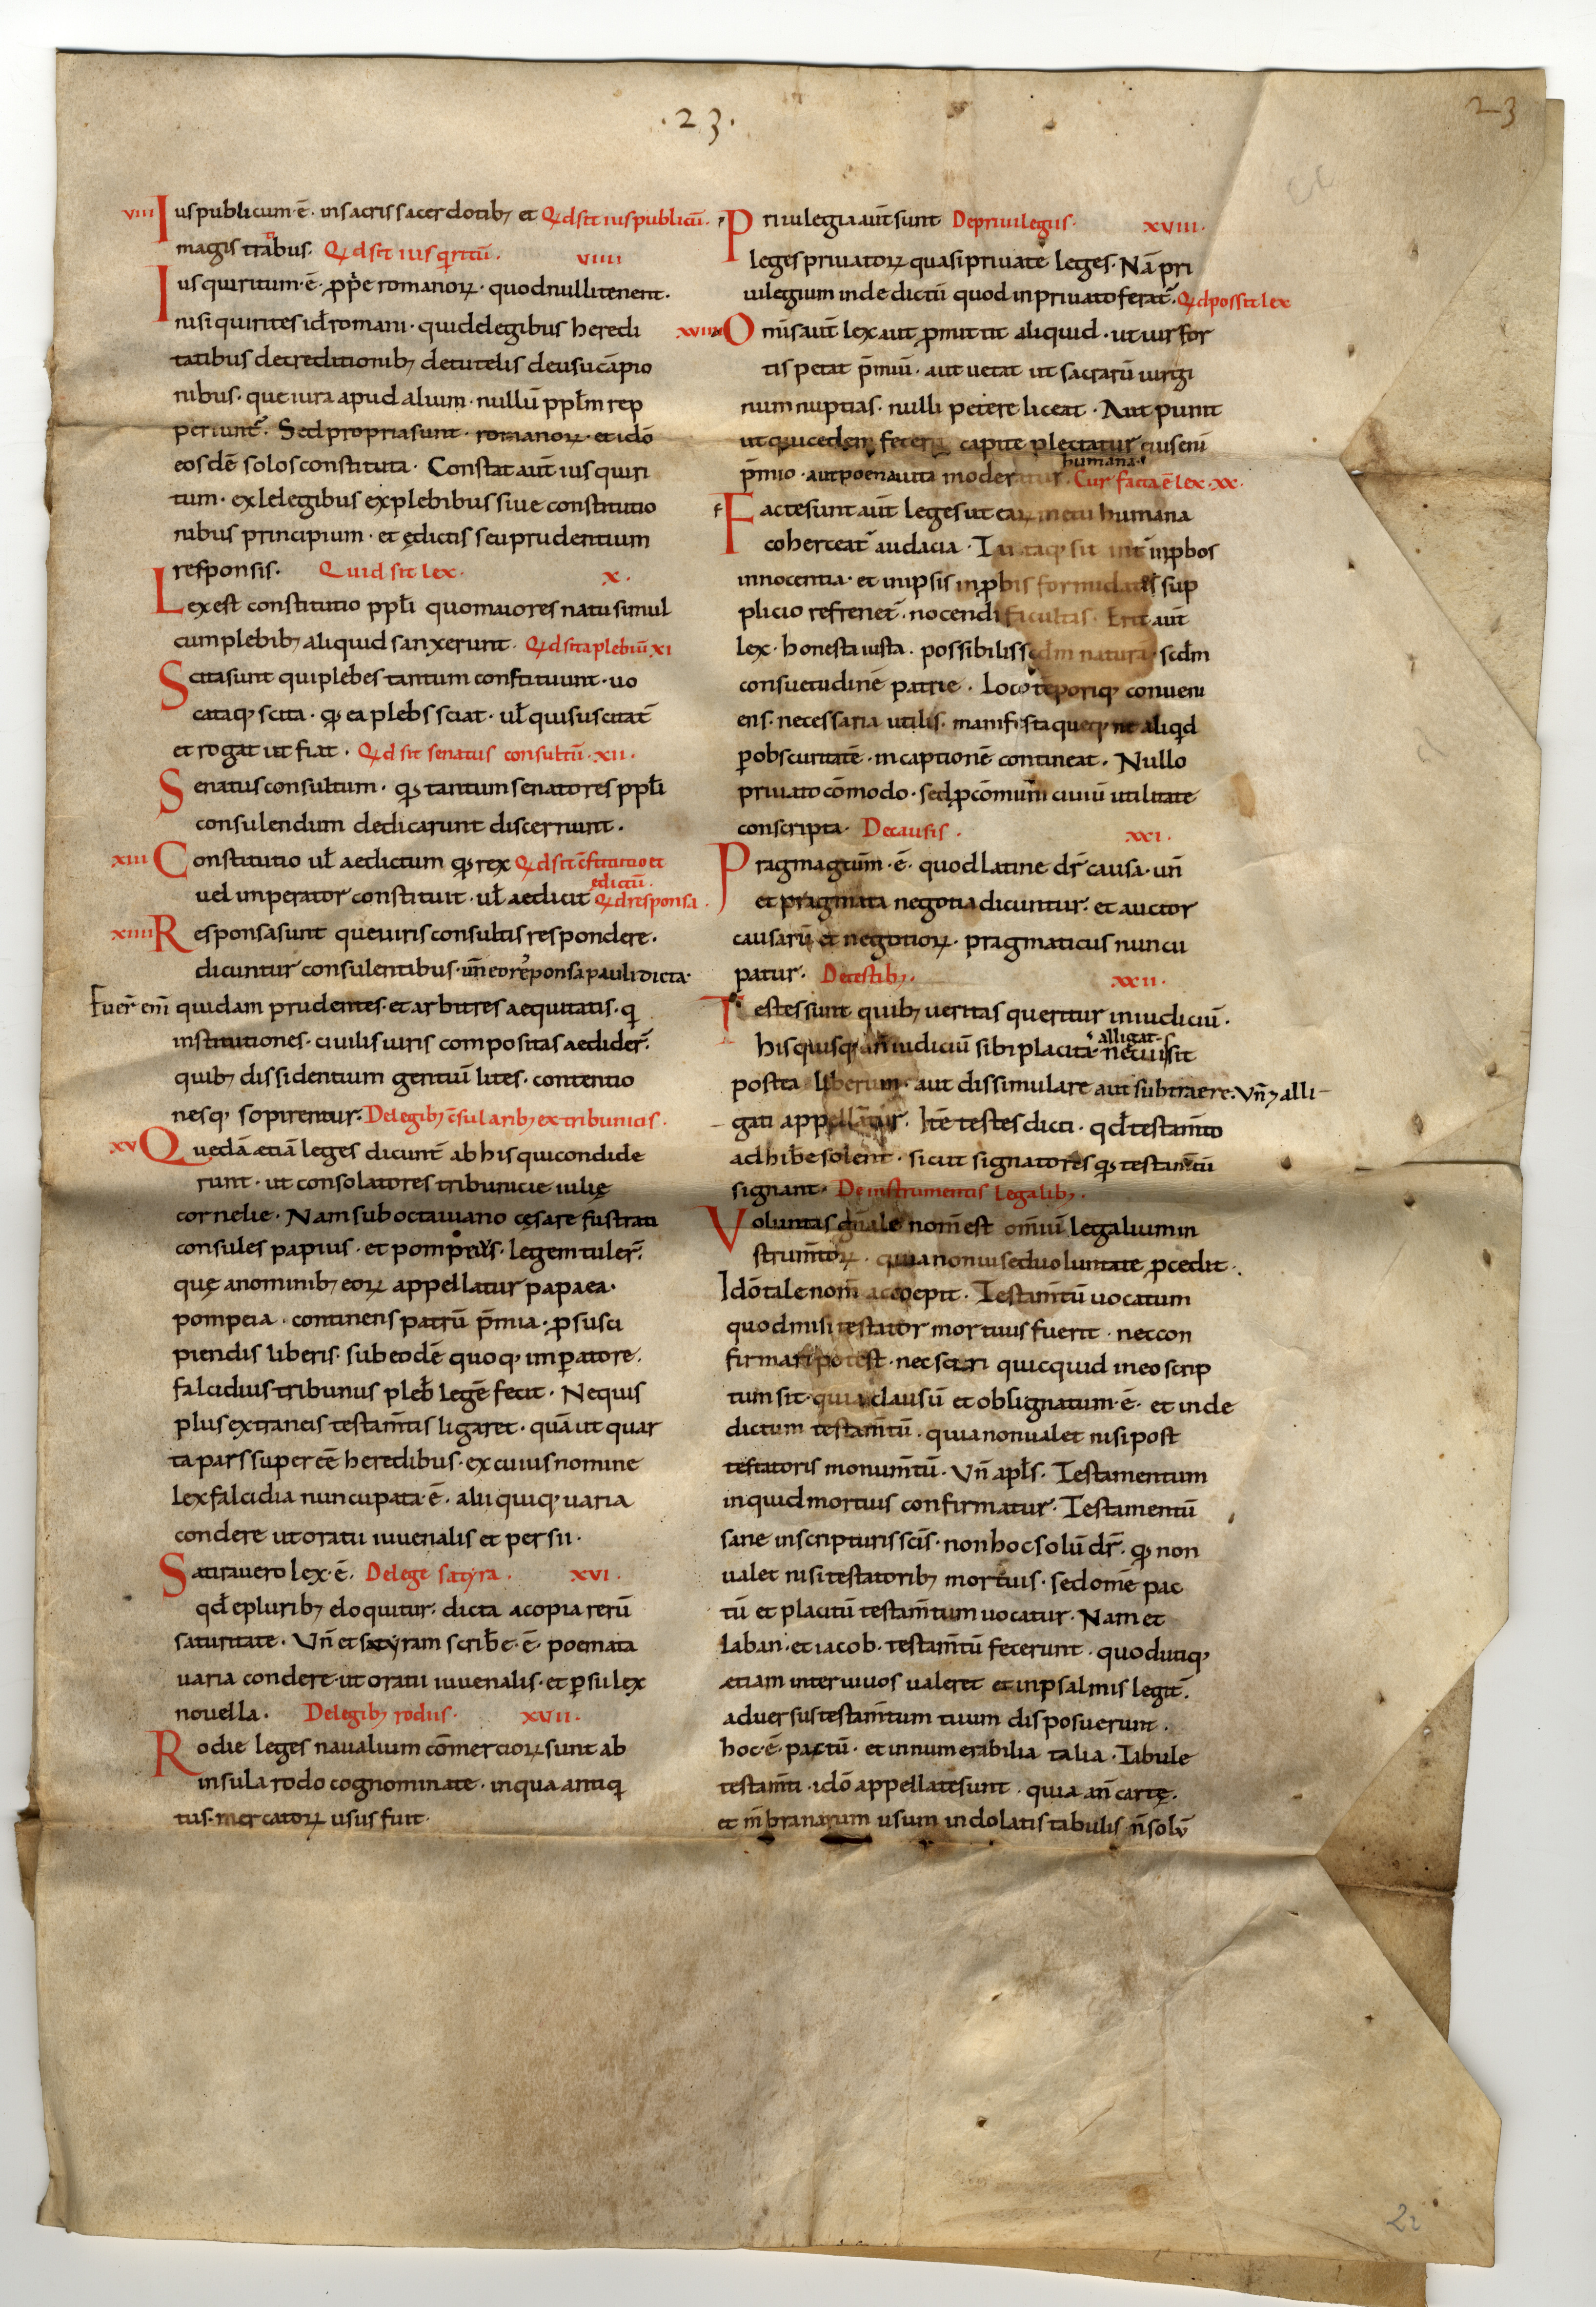 .23.
23
viii Ius publicum·ē· in sacris sacerdotib; et Qd sit ius publicū.
magistratibus. Qd sit ius qritū. viiii
Ius quiritum·ē· ꝓpe romanoꝝ· quod nulli tenent.
nisi quirites id romani· quid de legibus heredi
tatibus de creditionib; de tutelis de usucāpio
nibus· que iura apud alium· nullū pplm rep
periunt̄. Sed propria sunt· romanoꝝ· et idō
eosdē solos constituta· Constat aūt ius quiri
tum· ex lelegibus ex plebibus sive constitutio
nibus principium· et ędictis seu prudentium
responsis. Quid sit lex. x.
Lex est constitutio ppli quo maiores natu simul
cum plebib; aliquid sanxerunt. Qd scita plebiū xi
Scita sunt qui plebes tantum constituunt· uo
cataq; scita· q; ea plebs sciat· ul quis uscitat̄
et rogat ut fiat. Qd sit senatus consultū·xii.
Senatus consultum· q; tantum senatores ppli
consulendum dedicarunt discernunt.
xiii Constitutio ul aedictum q; rex Qd sit c̄stitutio et
edictū.
uel imperator constituit· ul aedicit Qd responsa.
xiiii Responsa sunt que uiris consultis respondere.
dicuntur consulentibus· un̄ eo responsa pauli dicta·
Fuer̄ eni quidam prudentes· et arbitres aequitatis· q
institutiones· civilis iuris compositas aedider̄.
quib; dissidentium gentiū lites· contentio
nesq; sopirentur. De legib; c̄sularib; ex tribunicis.
xv Quedā etiā leges dicunt̄ ab his qui condide
runt· ut consolatores tribunicie iulię
cornelie· Nam sub octaviano cęsare fustrati
consules papius· et pompeius· legem tuler̄.
quę a nominib; eoꝝ appellatur papaea·
pompeia· continens patrū p̄mia· ꝓ susci
piendis liberis· sub eodē quoq; imꝑatore.
falcidius tribunus pleb legē fecit· Ne quis
plus extraneis testam̄tis ligaret· quā ut quar
ta pars superēe heredibus· ex cuius nomine
lex falcidia nuncupata·ē· alii quiq; uaria
condere ut oratii iuvenalis et persii·
Satira uero lex·ē. De lege satyra. xvi.
qd e plurib; eloquitur· dicta a copia rerū
saturitate· Un̄ et satyram scribe·ē· poemata
uaria condere ut oratii iuvenalis· et ꝑsii lex
novella. De legib; rodiis. xvii.
Rodie leges navalium cōmercioꝝ sunt ab
insula rodo cognominate· in qua antiq
tus· mercatoꝝ usus fuit·
Privilegia aūt sunt De privilegiis. xviii.
leges privatoꝝ quasi private leges· Nā pri
uilegium inde dictū quod in privato ferat̄. Qd possit lex
xviiii Omis aūt lex aut ꝑmittit aliquid· ut uir for
tis petat p̄miū· aut uetat ut sacrarū uirgi
num nuptias· nulli petere liceat· Aut punit
ut qui cedem fecerit capite plectatur eius eni
humana·
p̄mio· aut poena uita moderatur. Cur facta ē lex·xx·
Facte sunt aūt leges ut eaꝝ metu humana
coherceat̄ audacia· Tutaq; sit int̄ inꝓbos
innocentia· et in ipsis inꝓbis formidates sup
plicio refrenet̄· nocendi facultas. Erit aūt
lex· honesta iusta· possibilis scdm naturā· scdm
consuetudinē patrie· Loco tēporiq; conveni
ens· necessaria utilis· manifesta queq; ne aliqd
ꝑ obscuritatē· in captionē contineat· Nullo
privato cōmodo· sed ꝓ cōmuni civiū utilitate
conscripta· De causis. xxi.
Pragmagtūm·ē· quod latine dr̄ causa· un̄
et pragmata negotia dicuntur· et auctor
causarū et negotioꝝ· pragmaticus nuncu
patur· De testib;. xxii.
Testes sunt quib; ueritas queritur in iudiciū·
alligat
His quisq; an̄ iudiciū sibi placita· ne cui sit
postea liberum· aut dissimulare aut subtraere· Un̄ & alli
gati appellantur. Itē testes dicti· qd testam̄to
adhibe solent̄· sicut signatores q; testam̄tū
signant· De instrumentis legalib;.
Voluntas gn̄ale nom̄ est om̄iū legalium in
strum̄toꝝ· quia non ui sed voluntate ꝓcedit·
Idō tale nom̄ accoepit· Testam̄tū uocatum
quod nisi testator mortuus fuerit· nec con
firmari potest· nec sciri quicquid in eo scrip
tum sit· quia clausū et obsignatum·ē· et inde
dictum testam̄tū· quia non ualet nisi post
testatoris monum̄tū· Un̄ apls· Testamentum
inquid mortuis confirmatur· Testamentū
sane in scripturis sc̄is· non hoc solū dr̄· q; non
ualet nisi testatorib; mortuis· sed omē pac
tū et placitū testam̄tum uocatur· Nam et
laban· et iacob· testam̄tū fecerunt· quod utiq;
etiam inter uiuos ualeret et in psalmis legit̄.
adversus testam̄tum tuum disposuerunt.
hoc·ē· pactū· et innumerabilia talia· Tabule
testam̄ti· idō appellate sunt· quia an̄ cartę.
et m̄branarum usum in dolatis tabulis· n̄ solū